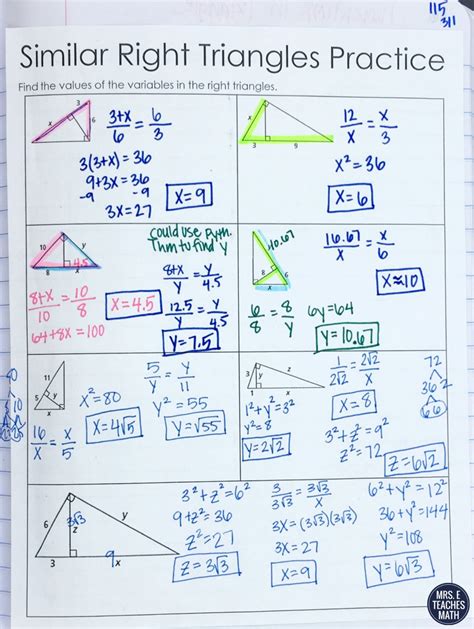 115
311
Similar Right Triangles Practice
Find the values of the variables in the right triangles.
3
x
6
3+x/6 = 6/3
3(3+x) = 36
9+3x = 36
-9 -9
3x=27
x=9
x
3
9
12/x = x/3
x² = 36
x=6
10
y
8
x
4.5
could use pyth.
Thm to find y
8+x/10 = 10/8
64+8x = 100
x=4.5
8+x/y = y/4.5
12.5/y = y/4.5
y=7.5
10.67
8
6
16.67/x = x/6
x≈10
6/8 = 8/y
6y=64
y=10.67
11
5
y
x
16/x = x/5
x²=80
x=4√5
5/y = y/11
y² = 55
y=√55
3
y
z
1
x
1/2√2 = 2√2/x
1²+y²=3²
y²=8
y=2√2
x=8
3²+z²=9²
z²=72
z=6√2
72
36 2
6 6
6
3√3
z
y
3
9
x
3²+z²=6²
9+z²=36
z²=27
z=3√3
3/3√3 = 3√3/x
3x=(3√3)(3√3)
3x=27
x=9
6²+y²=12²
36+y²=144
y²=108
y=6√3
MRS. E
TEACHES
MATH